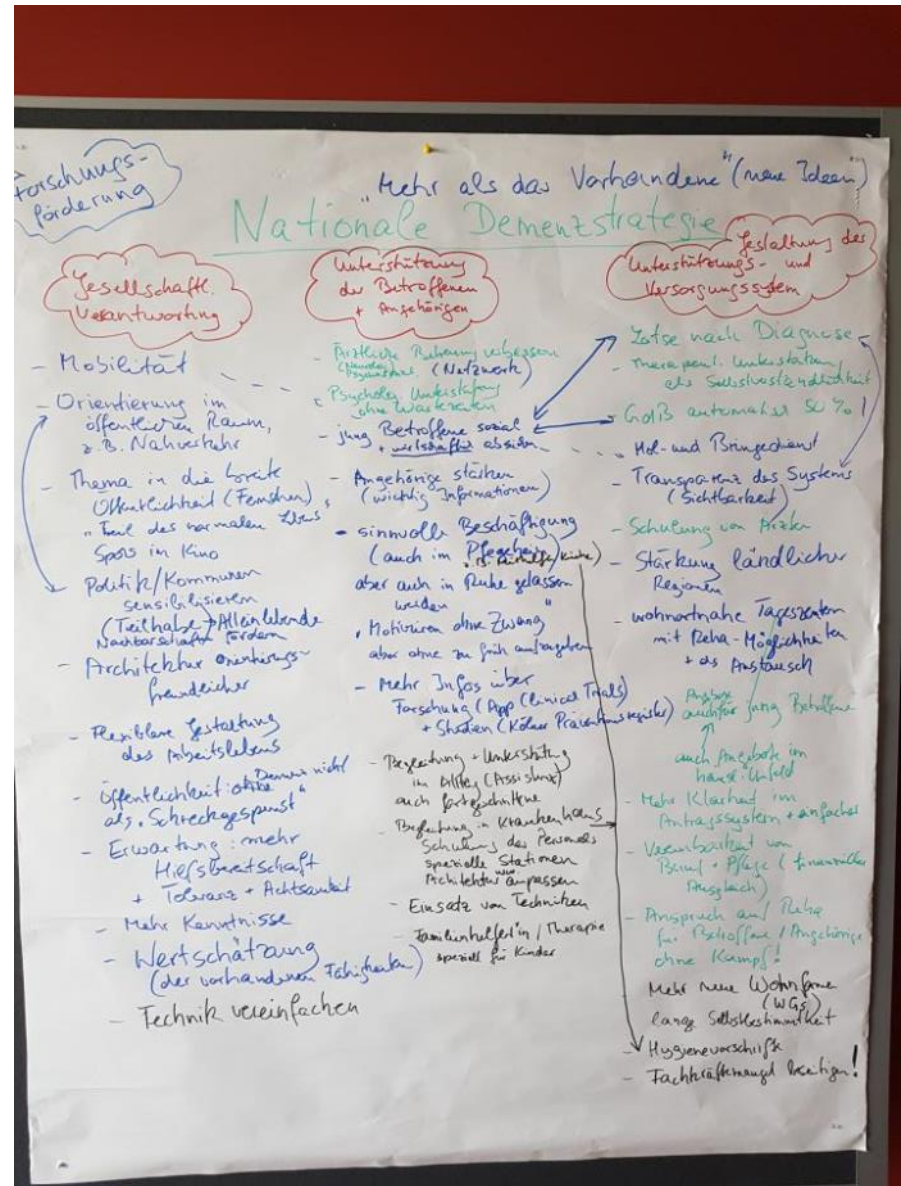 Forschungs-
förderung
"Mehr als das Vorhandene" (neue Ideen)
Nationale Demenzstrategie
Gesellschaftl.
Verantwortung
- Mobilität
- Orientierung im
öffentlichen Raum,
z.B. Nahverkehr
- Thema in die breite
Öffentlichkeit (Fernsehen)
"Teil des normalen Lebens"
Spots im Kino
- Politik/Kommunen
sensibilisieren
(Teilhabe) Alleinlebende
Nachbarschaften fördern
- Architektur orientierungs-
freundlicher
- Flexiblere Gestaltung
des Arbeitslebens
- Öffentlichkeit: Demenz nicht
als "Schreckgespenst"
- Erwartung: mehr
Hilfsbereitschaft
+ Toleranz + Achtsamkeit
- Mehr Kenntnisse
- Wertschätzung
(der vorhandenen Fähigkeiten)
- Technik vereinfachen
Unterstützung
der Betroffenen
+ Angehörigen
- Ärztliche Betreuung verbessern
(Netzwerk)
- Psycholog. Unterstützung
ohne Wartezeiten
- jung Betroffene sozial
+ wirtschaftl. absichern
- Angehörige stärken
(wichtig Informationen)
- sinnvolle Beschäftigung
(auch im Pflegeheim)
aber auch in Ruhe gelassen
werden
"Motivieren ohne Zwang"
aber ohne zu früh aufzugeben
- Mehr Infos über
Forschung (App Clinical Trials)
+ Studien (Kölner Präventionsregister)
- Begleitung + Unterstützung
im Alltag (Assistenz)
auch fortgeschrittene
- Begleitung in Krankenhaus
Schulung des Personals
spezielle Stationen
Architektur anpassen
- Einsatz von Techniken
- Familienhelfer/in / Therapie
speziell für Kinder
Gestaltung des
Unterstützungs- und
Versorgungssystem
- Lotse nach Diagnose
- Therapeut. Unterstützung
als Selbstverständlichkeit
- GdB automatisch 50 %!
- Hol- und Bringedienst
- Transparenz des Systems
(Sichtbarkeit)
- Schulung von Ärzten
- Stärkung ländlicher
Regionen
- wohnortnahe Tageszentren
mit Reha-Möglichkeiten
+ als Austausch
Angebote
auch für jung Betroffene
auch Angebote im
häusl. Umfeld
- Mehr Klarheit im
Antragssystem + einfacher
- Vereinbarkeit von
Beruf + Pflege (finanzieller
Ausgleich)
- Anspruch auf Reha
für Betroffene / Angehörige
ohne Kampf!
Mehr neue Wohnformen
(WGs)
lange Selbstbestimmtheit
- Hygienevorschrift
- Fachkräftemangel beseitigen!